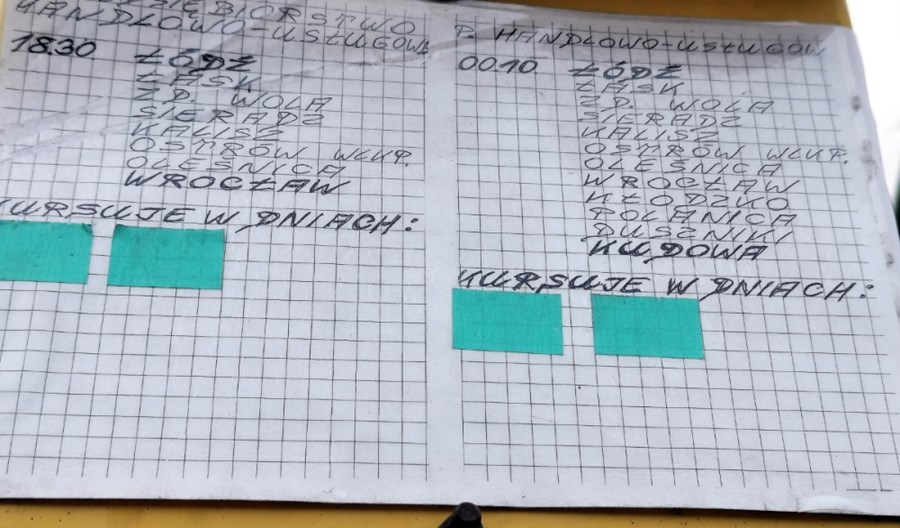 HANDŁOWO-USŁUGOWE
18.30 ŁÓDŹ
ŁASK
ZD. WOLA
SIERADZ
KALISZ
OSTRÓW WLKP.
OLEŚNICA
WROCŁAW
KURSUJE W DNIACH:
P. HANDLOWO-USŁUGOW
00.10 ŁÓDŹ
ŁASK
ZD. WOLA
SIERADZ
KALISZ
OSTRÓW WLKP.
OLEŚNICA
WROCŁAW
KŁODZKO
POLANICA
DUSZNIKI
KUDOWA
KURSUJE W DNIACH: